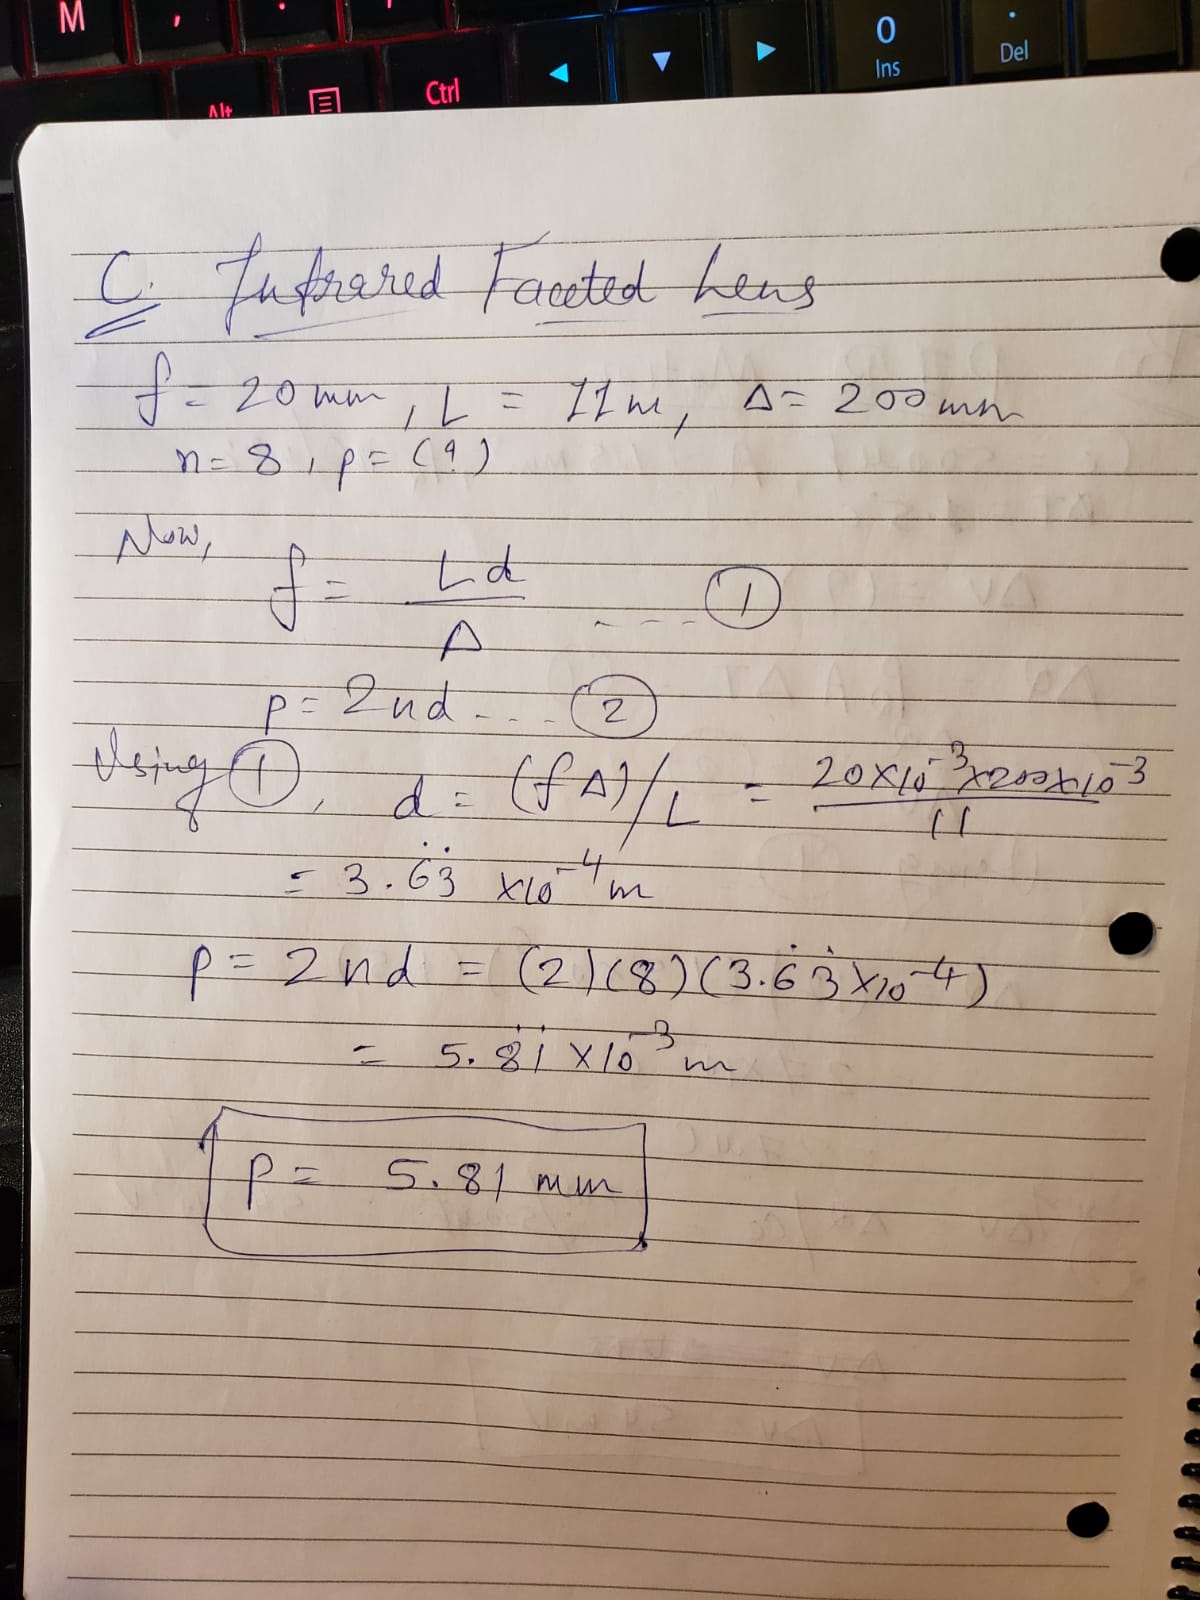 M , . /
Alt Ctrl 0 Ins . Del
C. Infrared Faceted Lens
f = 20 mm, L = 11 m, Δ = 200 mm
n = 8, p = (?)
Now,
f = Ld / Δ ---- ①
p = 2nd ---- ②
Using ①, d = (fΔ)/L = 20×10⁻³×200×10⁻³ / 11
= 3.6̇3̇ ×10⁻⁴ m
p = 2nd = (2)(8)(3.6̇3̇×10⁻⁴)
= 5.8̇1̇ ×10⁻³ m
p = 5.81 mm